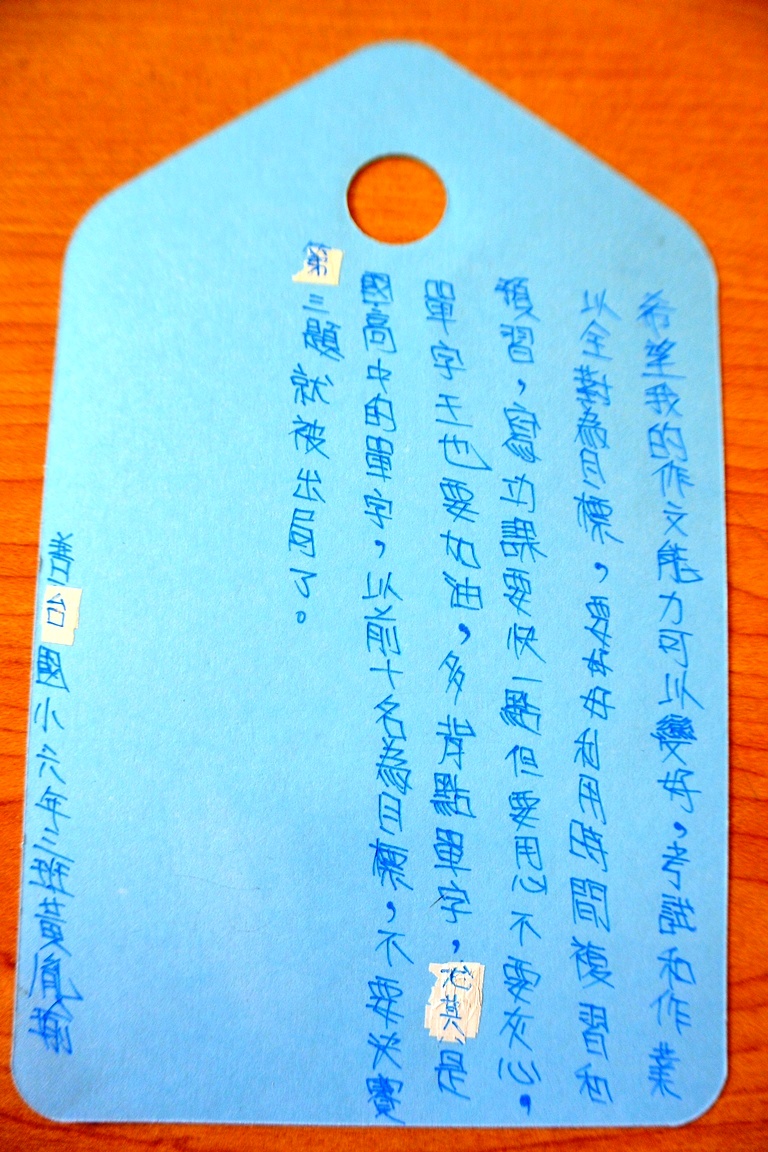 希望我的作文能力可以變好，考試和作業
以全對為目標，要好好利用時間複習和
預習，寫功課要快一點但要用心不要灰心，
單字王也要加油，多背點單字，尤其是
國高中的單字，以前十名為目標，不要決賽
第三題就被出局了。
國小六年三班黃鳳